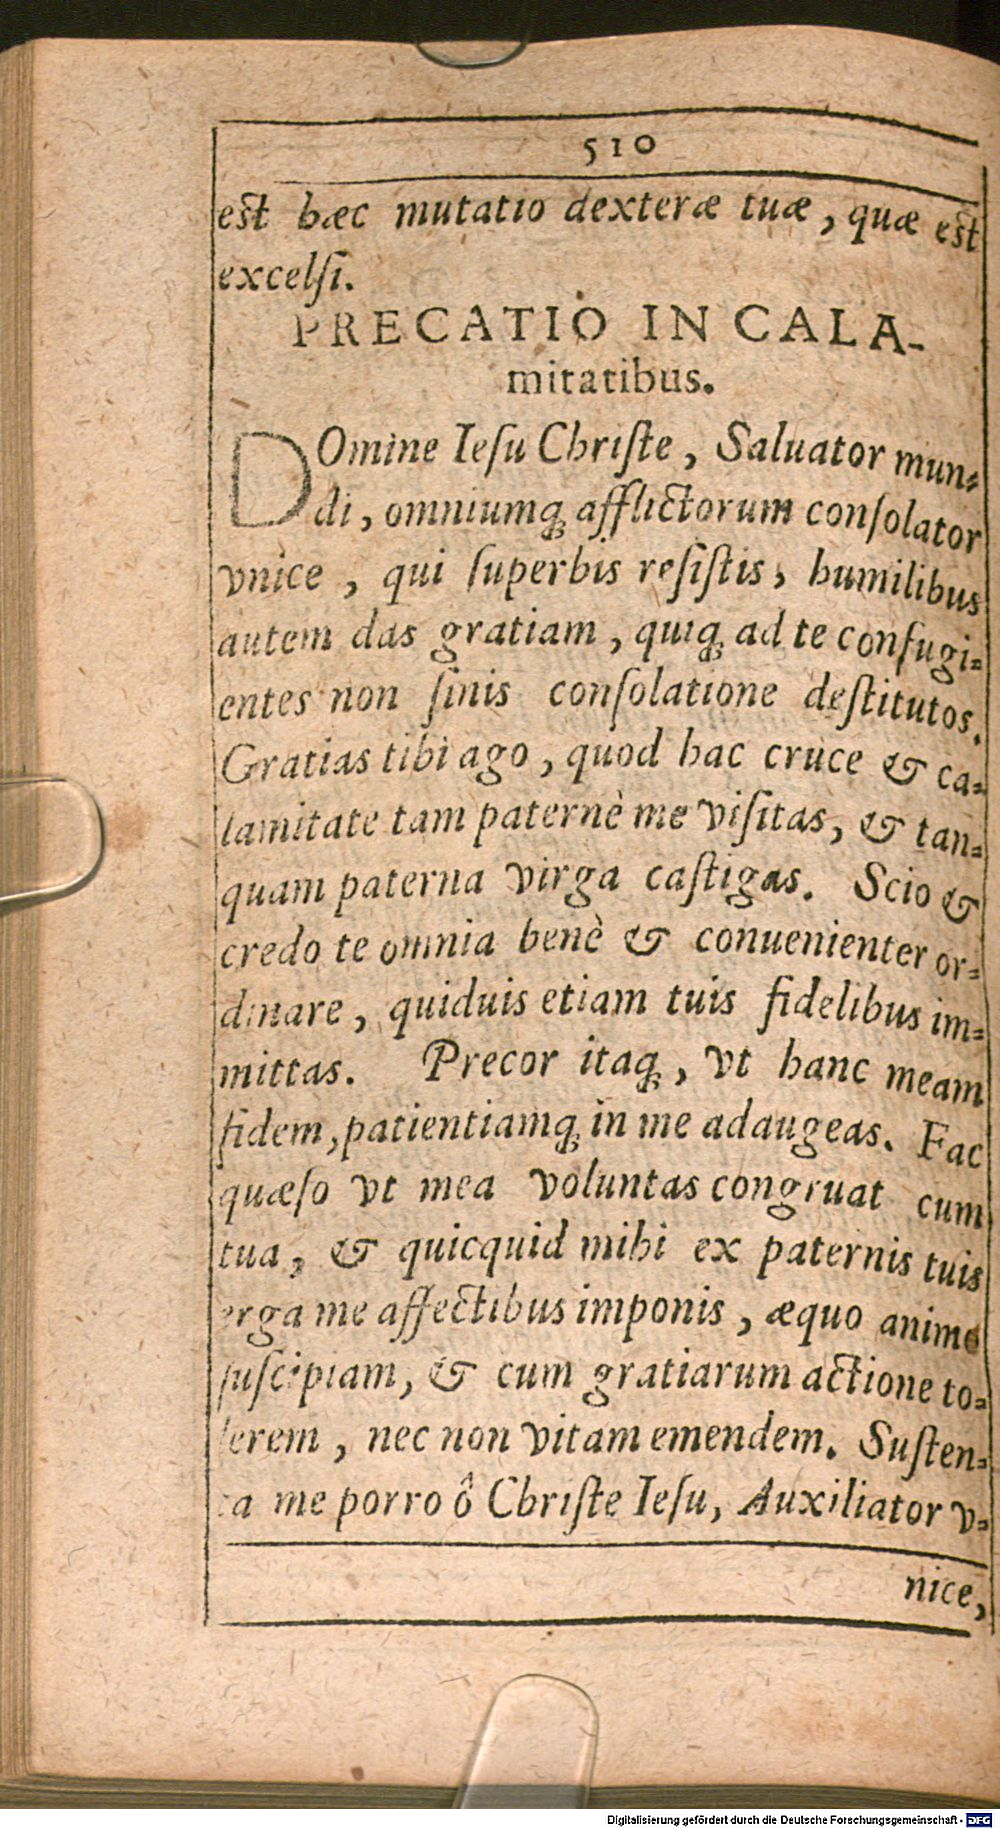 510
est hæc mutatio dexteræ tuæ, quæ est
excelſi.
PRECATIO IN CALA-
mitatibus.
DOmine Ieſu Chriſte, Saluator mun-
di, omniumq́; afflictorum conſolator
vnice, qui ſuperbis reſiſtis, humilibus
autem das gratiam, quiq́; ad te confugi-
entes non ſinis conſolatione deſtitutos.
Gratias tibi ago, quod hac cruce & ca-
lamitate tam paternè me viſitas, & tan-
quam paterna virga caſtigas. Scio &
credo te omnia benè & conuenienter or-
dinare, quiduis etiam tuis fidelibus im-
mittas. Precor itaq́;, vt hanc meam
fidem, patientiamq́; in me adaugeas. Fac
quæſo vt mea voluntas congruat cum
tua, & quicquid mihi ex paternis tuis
erga me affectibus imponis, æquo animo
ſuſcipiam, & cum gratiarum actione to-
lerem, nec non vitam emendem. Suſten-
ta me porro ô Chriſte Ieſu, Auxiliator v-
nice,
Digitalisierung gefördert durch die Deutsche Forschungsgemeinschaft - DFG